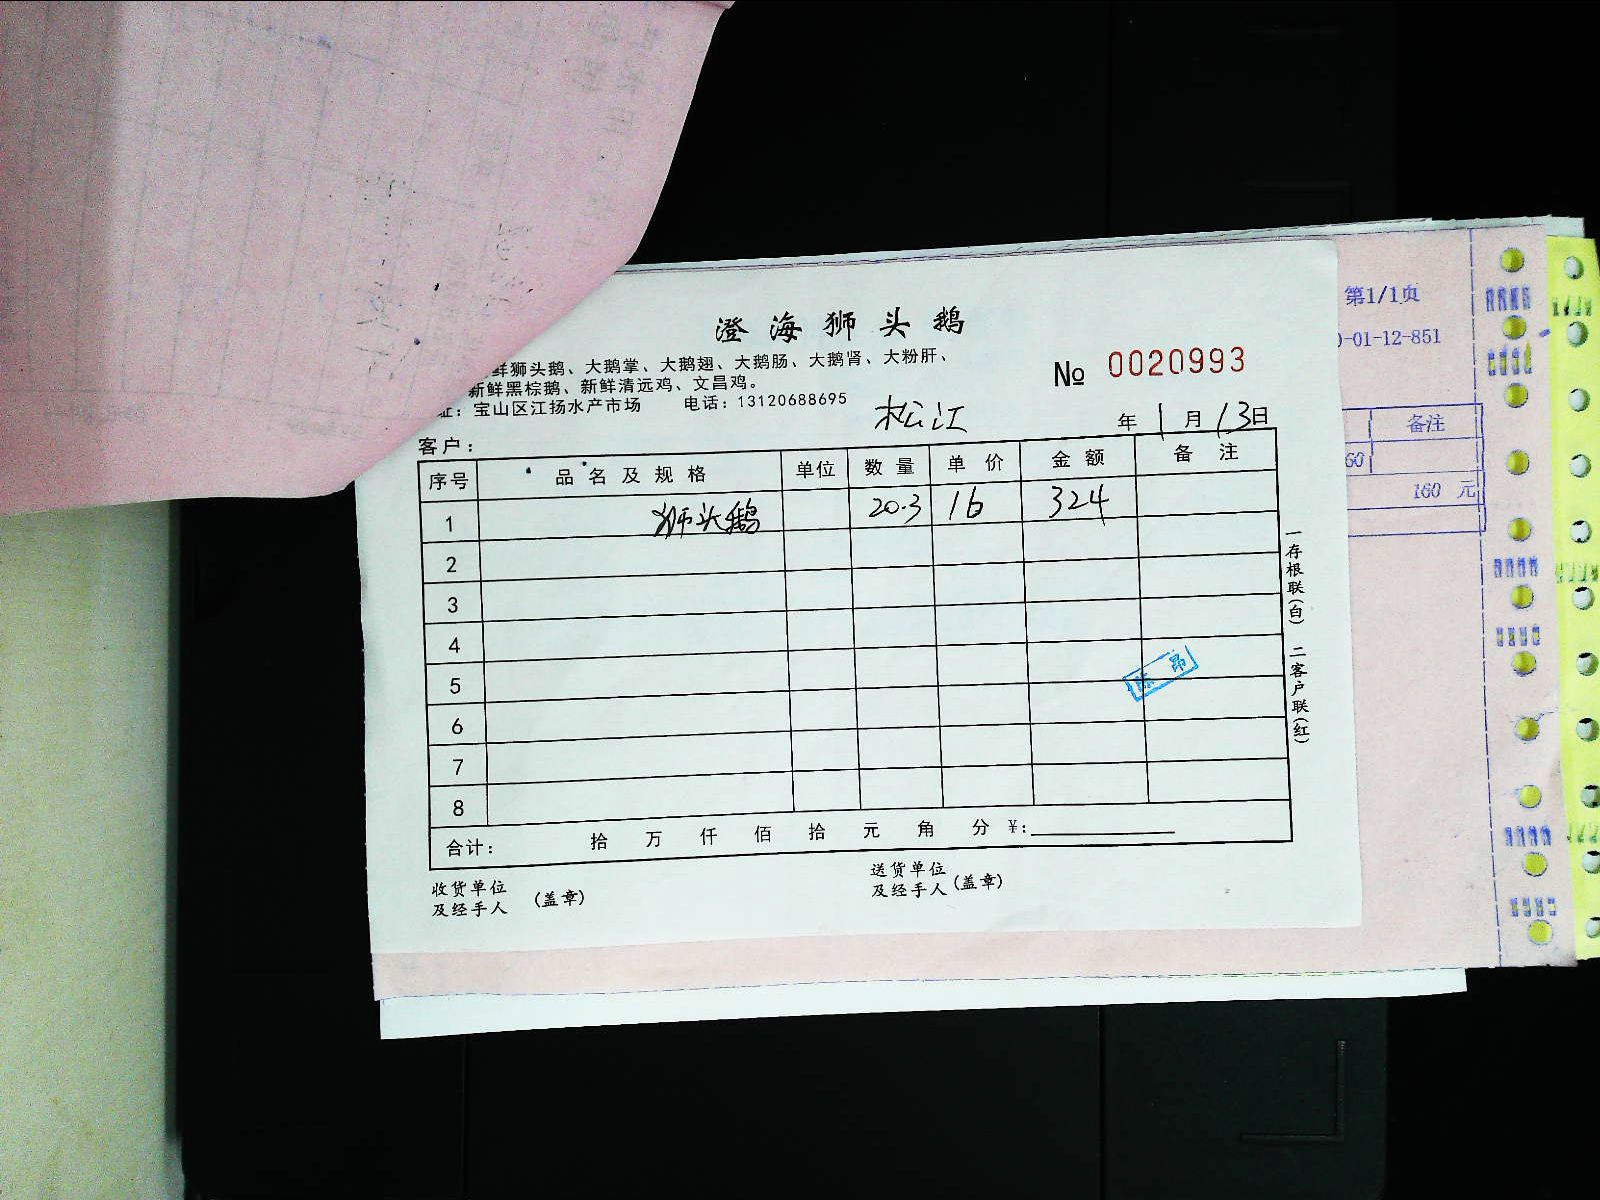 澄海狮头鹅
鲜狮头鹅、大鹅掌、大鹅翅、大鹅肠、大鹅肾、大粉肝、
新鲜黑棕鹅、新鲜清远鸡、文昌鸡。
址：宝山区江扬水产市场 电话：13120688695
№ 0020993
松江
年 1 月 13 日
客户：
序号 品名及规格 单位 数量 单价 金额 备注
1 狮头鹅 20.3 16 324
2
3
4
5
6
7
8
合计： 拾 万 仟 佰 拾 元 角 分 ¥:
收货单位
及经手人 (盖章)
送货单位
及经手人 (盖章)
一存根联(白) 二客户联(红)
第1/1页
-01-12-851
备注
60
160 元